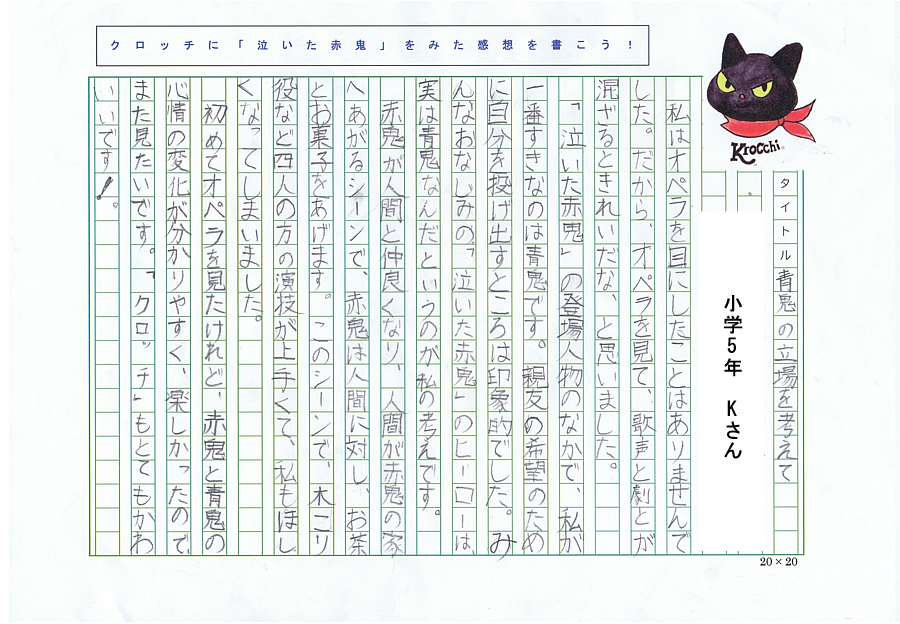 クロッチに「泣いた赤鬼」をみた感想を書こう！
Krocchi
タイトル 青鬼の立場を考えて
小学5年 Kさん
私はオペラを目にしたことはありませんで
した。だから、オペラを見て、歌声と劇とが
混ざるときれいだな、と思いました。
「泣いた赤鬼」の登場人物のなかで、私が
一番すきなのは青鬼です。親友の希望のため
に自分を投げ出すところは印象的でした。み
んなおなじみの「泣いた赤鬼」のヒーローは、
実は青鬼なんだというのが私の考えです。
赤鬼が人間と仲良くなり、人間が赤鬼の家
へあがるシーンで、赤鬼は人間に対し、お茶
とお菓子をあげます。このシーンで、木こり
役など四人の方の演技が上手くて、私もほし
くなってしまいました。
初めてオペラを見たけれど、赤鬼と青鬼の
心情の変化が分かりやすく、楽しかったので、
また見たいです。「クロッチ」もとてもかわ
いいです！。
20×20